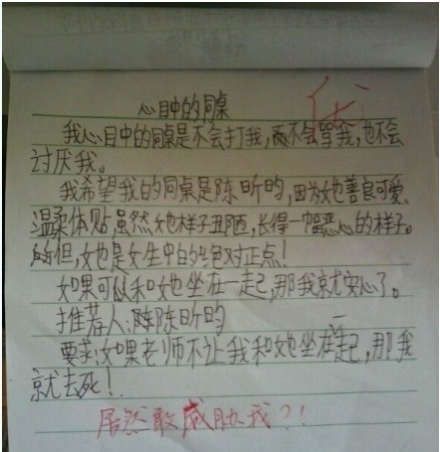 心目中的同桌
我心目中的同桌是不会打我,不会骂我,也不会
讨厌我。
我希望我的同桌是陈昕昀,因为她善良可爱、
温柔体贴,虽然她样子丑陋,长得一幅恶心的样子。
但,她也是女生中的绝对正点!
如果可以和她坐在一起,那我就安心了。
推荐人:陈昕昀
要求:如果老师不让我和她坐在一起,那我
就去死!
居然敢威胁我?!